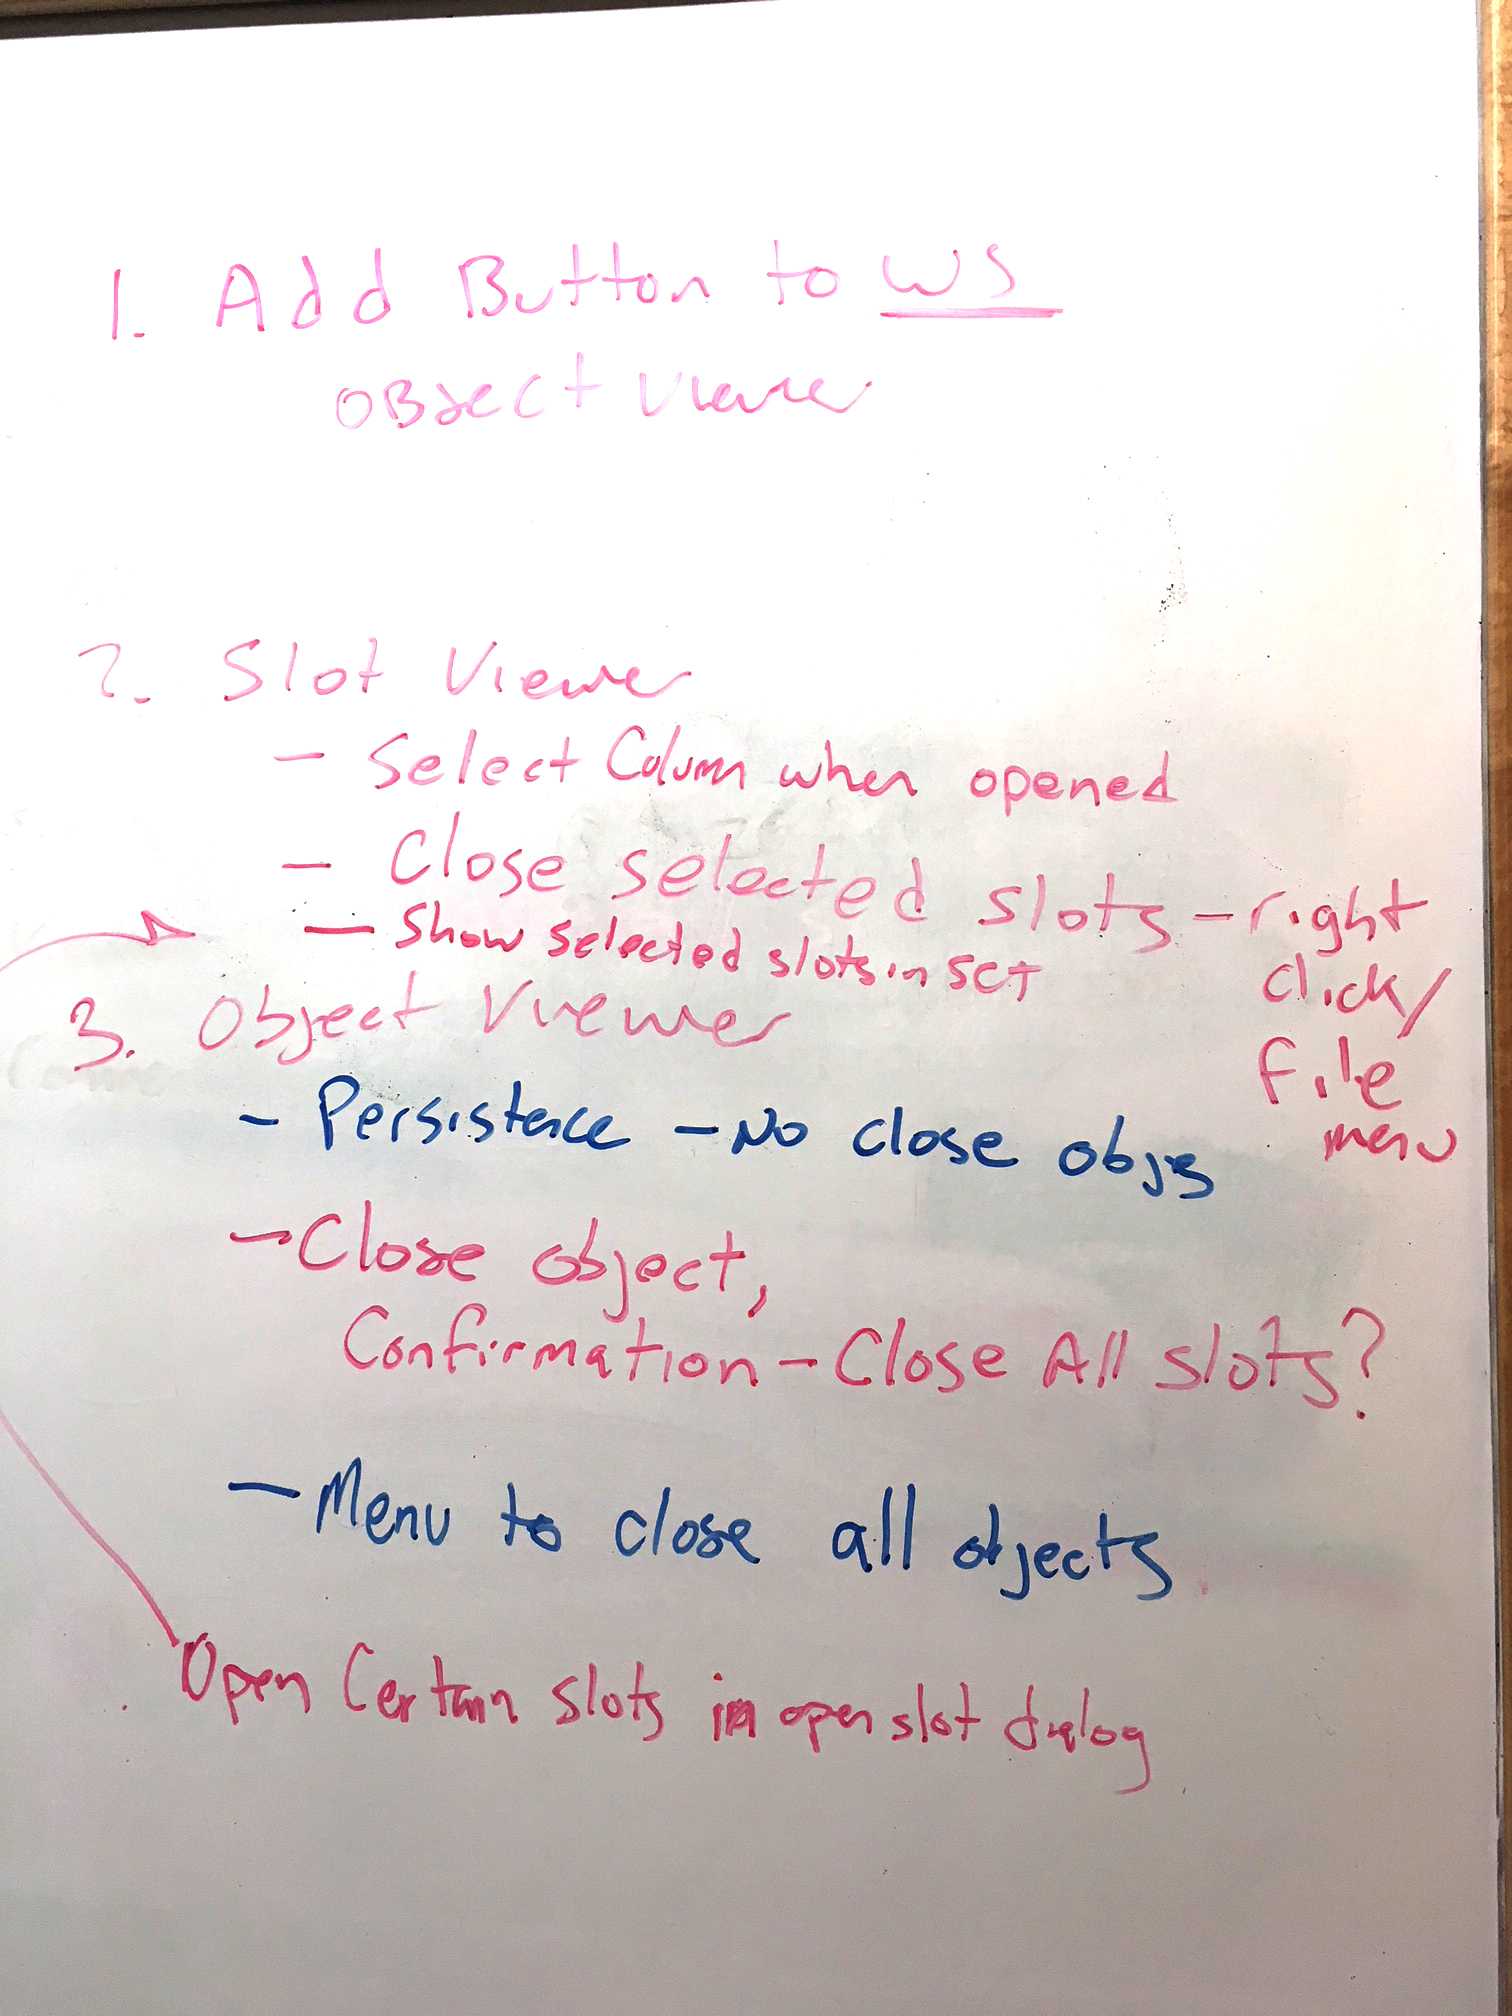 1. Add Button to WS
Object Viewer
2. Slot Viewer
- Select Column when opened
- Close selected slots - right
click/
File
menu
- Show selected slots in SCT
3. Object Viewer
- Persistence - No close objs
- Close object,
Confirmation - Close All slots?
- Menu to close all objects
Open Certain slots in open slot dialog